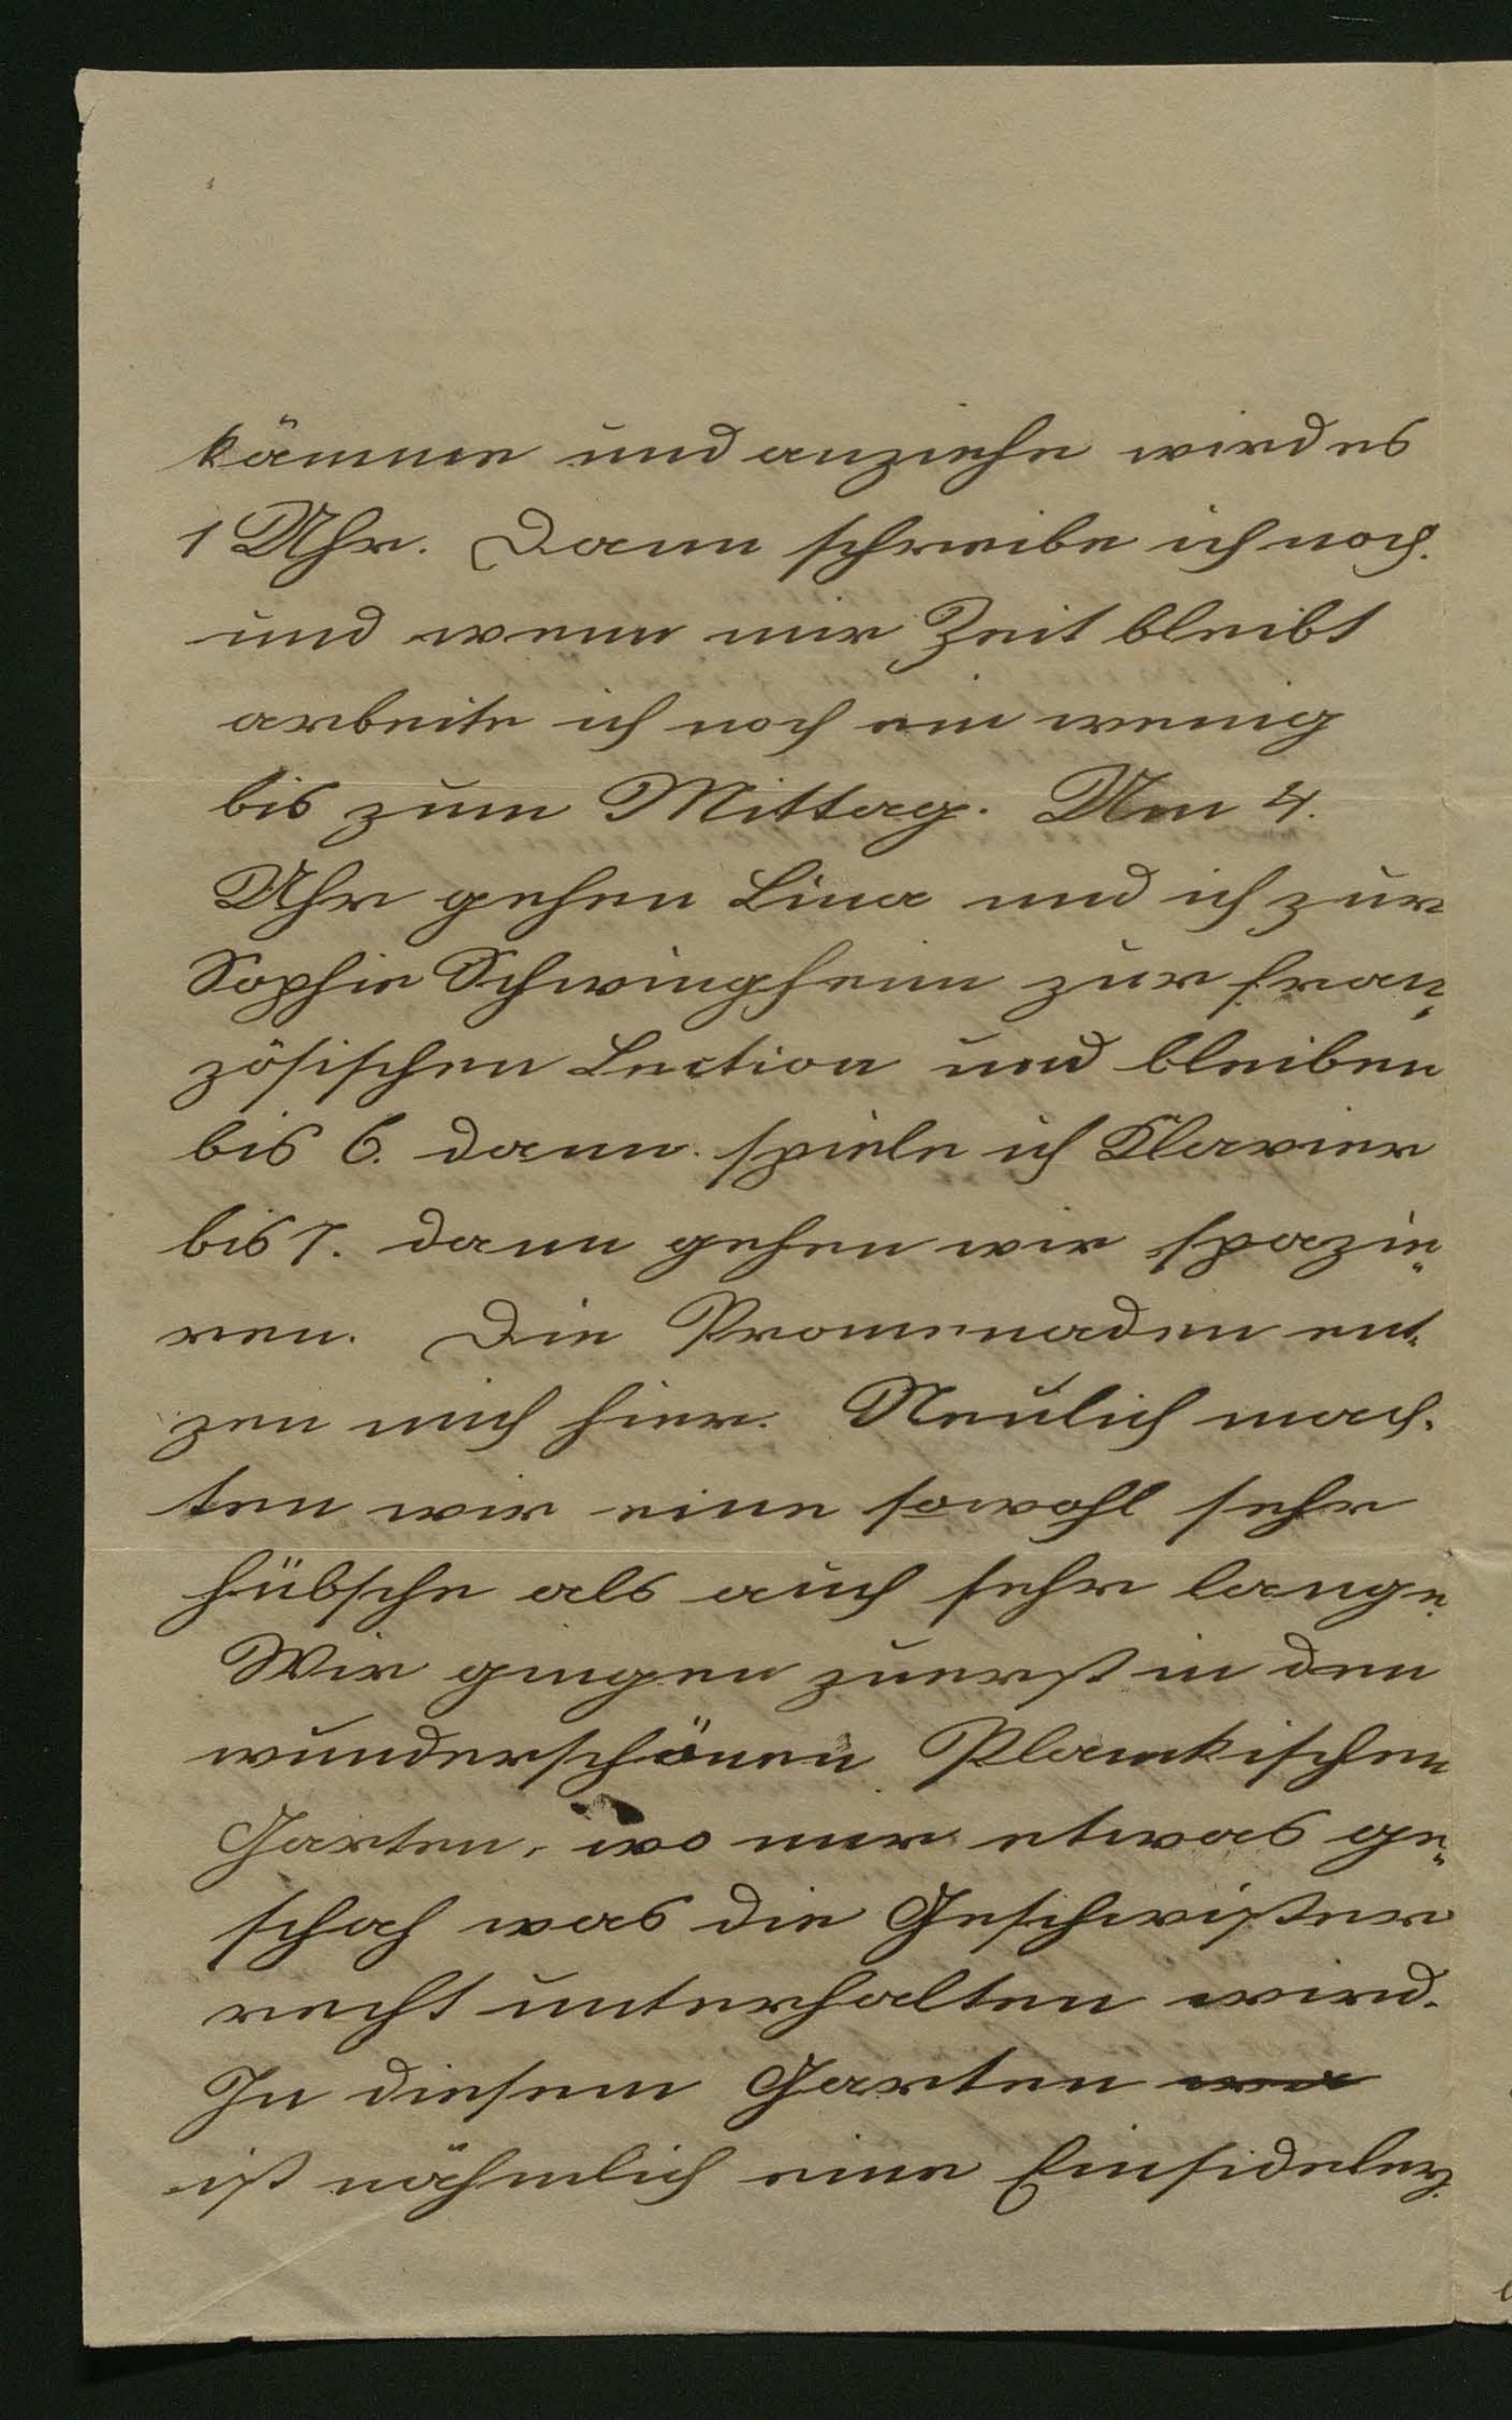 kämme und anziehe wird es
1 Uhr. Dann schreibe ich noch.
und wenn mir Zeit bleibt
arbeite ich noch ein wenig
bis zum Mittag. Um 4.
Uhr gehen Lina und ich zur
Sophie Schwingheim zur fran„
zösischen Lection und bleiben
bis 6. dann spiele ich Klavier
bis 7. dann gehen wir spazie„
ren. Die Promenaden ent-
zen mich hier. Neulich mach-
ten wir eine sowohl sehr
hübsche als auch sehr lange.
Wir gingen zuerst in den
wunderschönen Plankischen
Garten, wo mir etwas ge„
schah was die Geschwister
recht unterhalten wird.
In diesem Garten
ist nähmlich eine Einsideley.